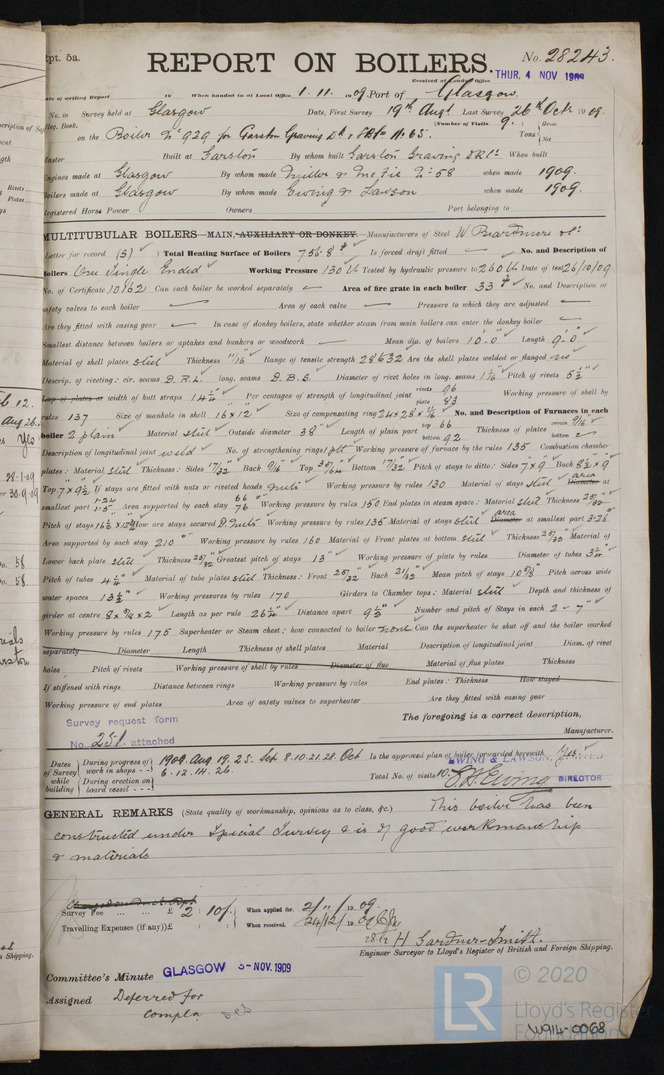 Rpt. 5a.
REPORT ON BOILERS.
No. 28243.
Received at London Office THUR, 4 NOV 1909
Date of writing Report 19 When handed in at Local Office 1.11.1909. Port of Glasgow.
No. in Survey held at Glasgow Date, First Survey 19th Augt Last Survey 26th Octr 1909.
Reg. Book. (Number of Visits 9.) Gross
on the Boiler No 929 for Garston Graving Dk Tons Net
Master Built at Garston By whom built Garston Graving When built
Engines made at Glasgow By whom made No 58 when made 1909.
Boilers made at Glasgow By whom made Ewing & Lawson when made 1909.
Registered Horse Power Owners Port belonging to
MULTITUBULAR BOILERS—MAIN, AUXILIARY OR DONKEY.—Manufacturers of Steel W Beardmore &
Letter for record (S) Total Heating Surface of Boilers 756.8 Is forced draft fitted No. and Description of
Boilers One Single Ended Working Pressure 130 lb Tested by hydraulic pressure to 260 lb Date of test 26/10/09
No. of Certificate 10162 Can each boiler be worked separately Area of fire grate in each boiler 33 No. and Description of
safety valves to each boiler Area of each valve Pressure to which they are adjusted
Are they fitted with easing gear In case of donkey boilers, state whether steam from main boilers can enter the donkey boiler
Smallest distance between boilers or uptakes and bunkers or woodwork Mean dia. of boilers 10'.0" Length 9'.0"
Material of shell plates steel Thickness 11/16" Range of tensile strength 28&32 Are the shell plates welded or flanged no
Descrip. of riveting: cir. seams D.R.L. long. seams D.B.S. Diameter of rivet holes in long. seams 1 1/16 Pitch of rivets 5 1/2"
Lap of plates or width of butt straps 14 1/4" Per centages of strength of longitudinal joint rivets 96 plate 83 Working pressure of shell by
rules 137 Size of manhole in shell 16 x 12 Size of compensating ring 24 x 28 x 11/16 No. and Description of Furnaces in each
boiler 2 plain Material steel Outside diameter 38" Length of plain part top 66 bottom 92 Thickness of plates crown 9/16" bottom
Description of longitudinal joint weld No. of strengthening rings Working pressure of furnace by the rules 135 Combustion chamber
plates: Material steel Thickness: Sides 17/32 Back 9/16" Top 35/64 Bottom 17/32 Pitch of stays to ditto: Sides 7 x 9 Back 8 1/2 x 9
Top 7 x 9 1/2 If stays are fitted with nuts or riveted heads nuts Working pressure by rules 130 Material of stays steel area Diameter at
smallest part 1.24 1.5 Area supported by each stay 66 76 Working pressure by rules 150 End plates in steam space: Material steel Thickness 25/32
Pitch of stays 16 1/2 x How are stays secured D.nuts Working pressure by rules 135 Material of stays steel area Diameter at smallest part 3.26
Area supported by each stay 210 Working pressure by rules 160 Material of Front plates at bottom steel Thickness 25/32 Material of
Lower back plate steel Thickness 25/32 Greatest pitch of stays 13" Working pressure of plate by rules Diameter of tubes 3 1/4"
Pitch of tubes 4 1/4" Material of tube plates steel Thickness: Front 25/32 Back 21/32 Mean pitch of stays 10 5/8" Pitch across wide
water spaces 13 1/2" Working pressures by rules 170 Girders to Chamber tops: Material steel Depth and thickness of
girder at centre 8 x 9/16 x 2 Length as per rule 26 1/4" Distance apart 9 1/2" Number and pitch of Stays in each 2 - 7"
Working pressure by rules 175 Superheater or Steam chest; how connected to boiler none Can the superheater be shut off and the boiler worked
separately Diameter Length Thickness of shell plates Material Description of longitudinal joint Diam. of rivet
holes Pitch of rivets Working pressure of shell by rules Diameter of flue Material of flue plates Thickness
If stiffened with rings Distance between rings Working pressure by rules End plates: Thickness How stayed
Working pressure of end plates Area of safety valves to superheater Are they fitted with easing gear
Survey request form
No. 251 attached
The foregoing is a correct description,
Manufacturer.
EWING & LAWSON, LIMITED
DIRECTOR
Dates of Survey while building
During progress of work in shops - - 1909. Aug 19. 25. Sep 8. 10. 21. 28. Oct
6. 12. 14. 26.
During erection on board vessel - - -
Is the approved plan of boiler forwarded herewith Yes
Total No. of visits 10.
GENERAL REMARKS (State quality of workmanship, opinions as to class, &c.) This boiler has been
constructed under Special Survey & is of good workmanship
& materials
Survey Fee ... ... £ 2 : 10/- When applied for, 2/11/1909.
Travelling Expenses (if any) £ : : When received, 24/12/1909
H Gardner-Smith.
Engineer Surveyor to Lloyd's Register of British and Foreign Shipping.
Committee's Minute GLASGOW 3-NOV.1909
Assigned Deferred for
Compln
LR
© 2020
Lloyd's Register
Foundation
W914-0068